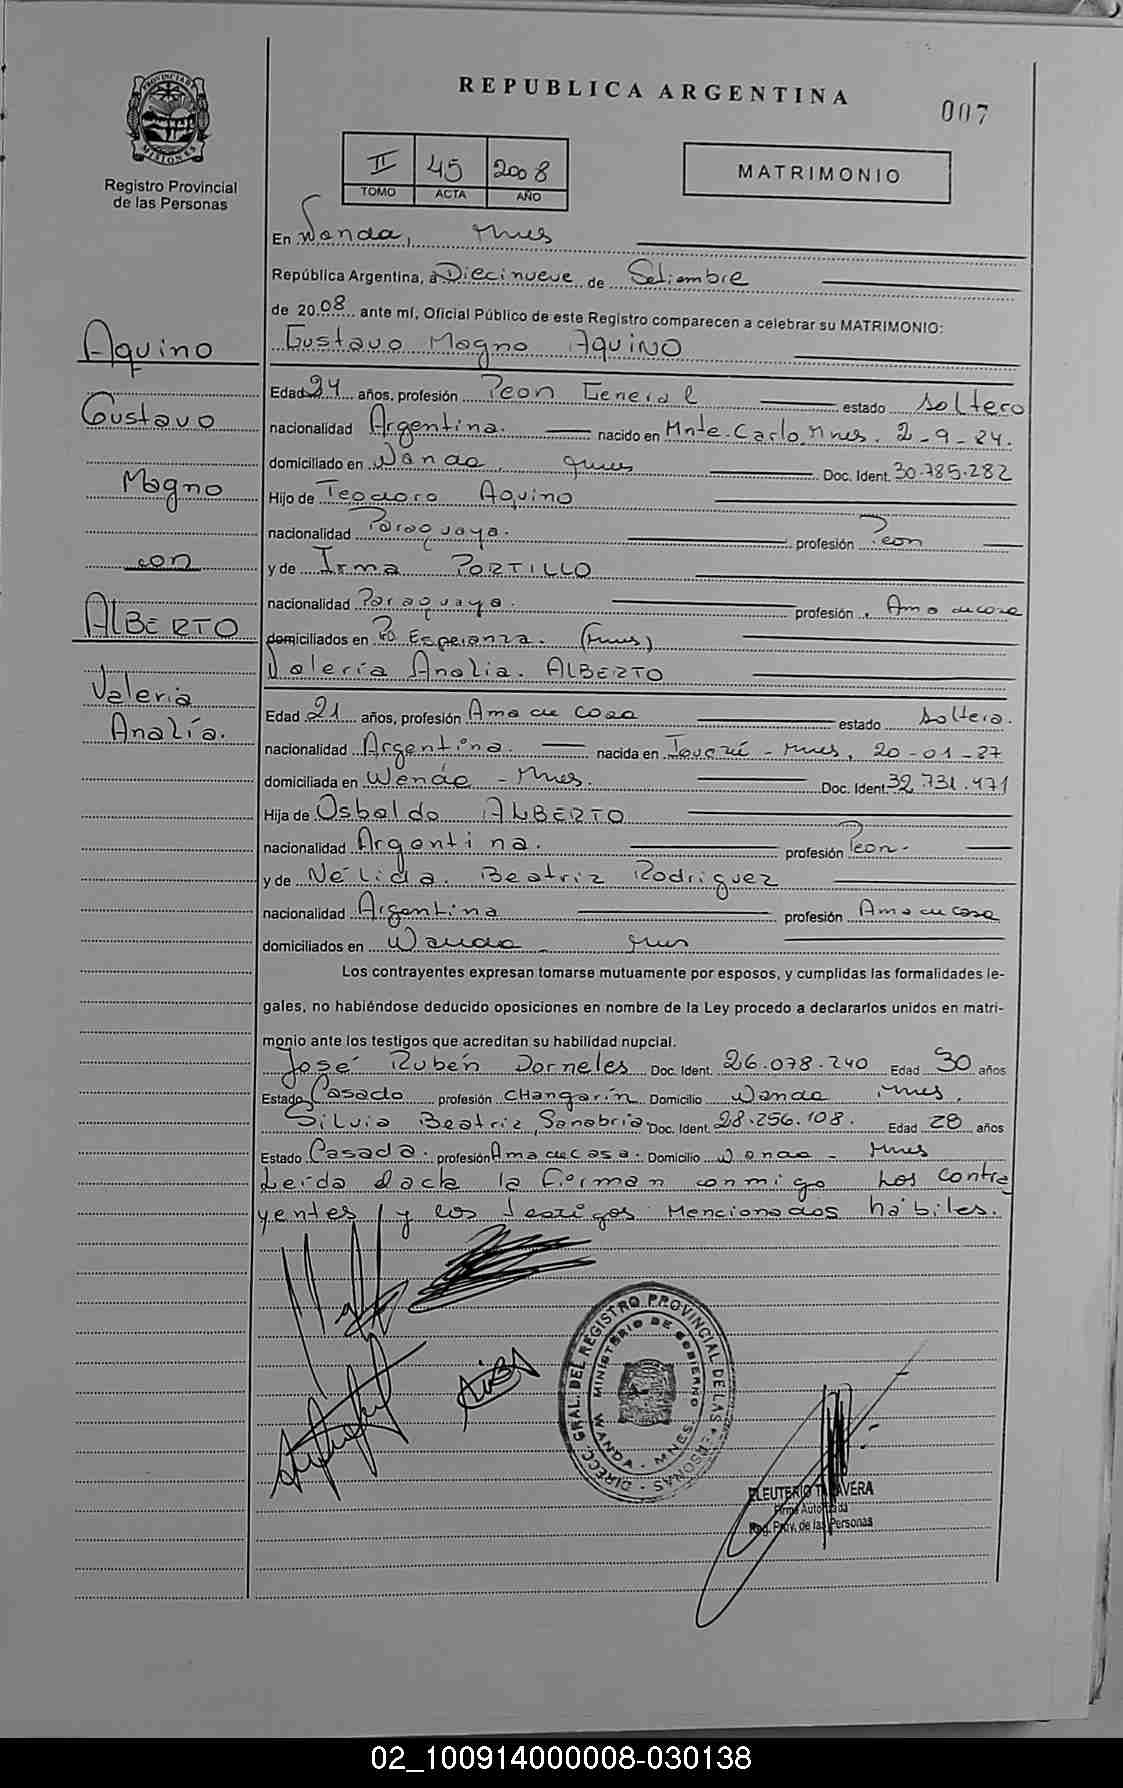 REPUBLICA ARGENTINA
007
PROVINCIA DE MISIONES
Registro Provincial
de las Personas
II 45 2008
TOMO ACTA AÑO
MATRIMONIO
En Wanda, Mnes
República Argentina, a Diecinueve de Setiembre
de 2008 ante mí, Oficial Público de este Registro comparecen a celebrar su MATRIMONIO:
Gustavo Magno AQUINO
Edad 24 años, profesión Peon General estado soltero
nacionalidad Argentina. nacido en Mnte. Carlo Mnes. 2-9-84.
domiciliado en Wanda, Mnes Doc. Ident. 30.785.282
Hijo de Teodoro Aquino
nacionalidad Paraguaya. profesión Peon
y de Irma PORTILLO
nacionalidad Paraguaya. profesión Ama de casa
domiciliados en Pto Esperanza. (Mnes)
Valeria Analia. ALBERTO
Edad 21 años, profesión Ama de casa estado soltera.
nacionalidad Argentina. nacida en - Mnes, 20-01-87
domiciliada en Wanda - Mnes. Doc. Ident. 32.731.471
Hija de Osbaldo ALBERTO
nacionalidad Argentina. profesión Peon.
y de Nélida. Beatriz Rodriguez
nacionalidad Argentina profesión Ama de casa
domiciliados en Wanda - Mnes
Los contrayentes expresan tomarse mutuamente por esposos, y cumplidas las formalidades le-
gales, no habiéndose deducido oposiciones en nombre de la Ley procedo a declararlos unidos en matri-
monio ante los testigos que acreditan su habilidad nupcial.
José Rubén Dorneles Doc. Ident. 26.078.240 Edad 30 años
Estado Casado profesión CHangarín Domicilio Wanda Mnes.
Silvia Beatriz Sanabria Doc. Ident. 28.256.108. Edad 28 años
Estado Casada. profesión Ama de Casa. Domicilio Wanda - Mnes
Leida el acta la firman conmigo los contra
yentes y los testigos Mencionados hábiles.
Aquino
Gustavo
Magno
con
ALBERTO
Valeria
Analía.
DIRECC. GRAL. DEL REGISTRO PROVINCIAL DE LAS PERSONAS
MINISTERIO DE GOBIERNO
WANDA - MNES.
ELEUTERIO TALAVERA
Firma Autorizada
Reg. Prov. de las Personas
02_100914000008-030138